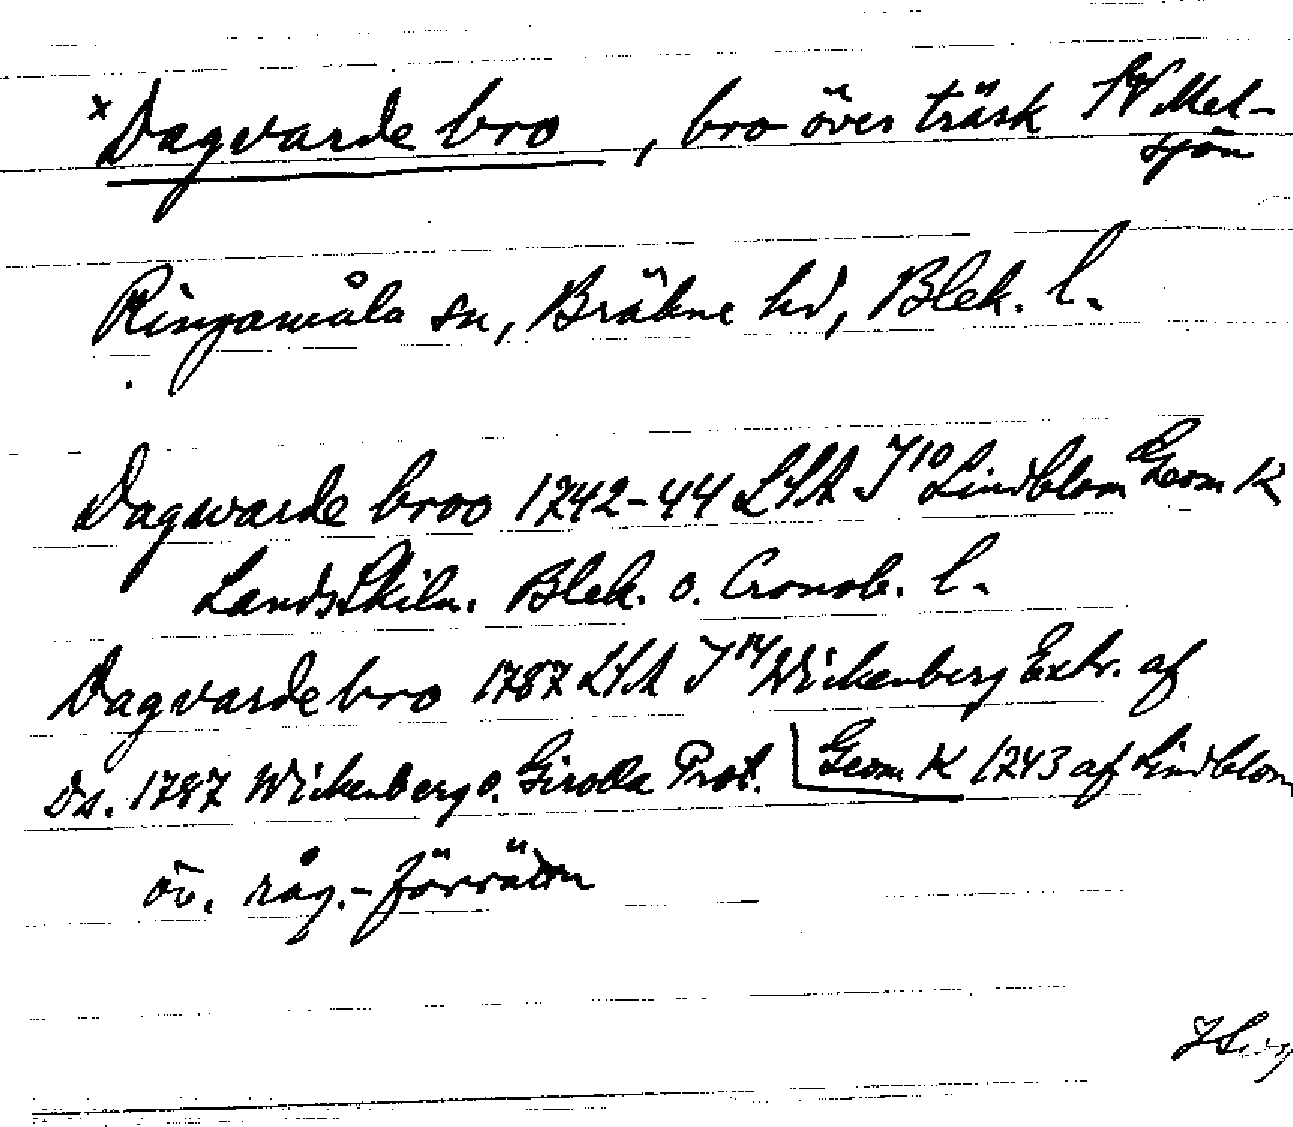 x Dagvarde bro, bro över träsk SV Mel-
sjön
Ringamåla sn, Bräkne hd, Blek. l.
Dagwarde broo 1742-44 LSA J10 Lindblom Geom K
LandsSkiln. Blek. o. Cronob. l.
Dagvarde bro 1787 LSA J14 Wickenberg Extr. af
Ds. 1787 Wickenberg o. Prot. Geom K 1743 af Lindblom
öv. råg.-förrätn